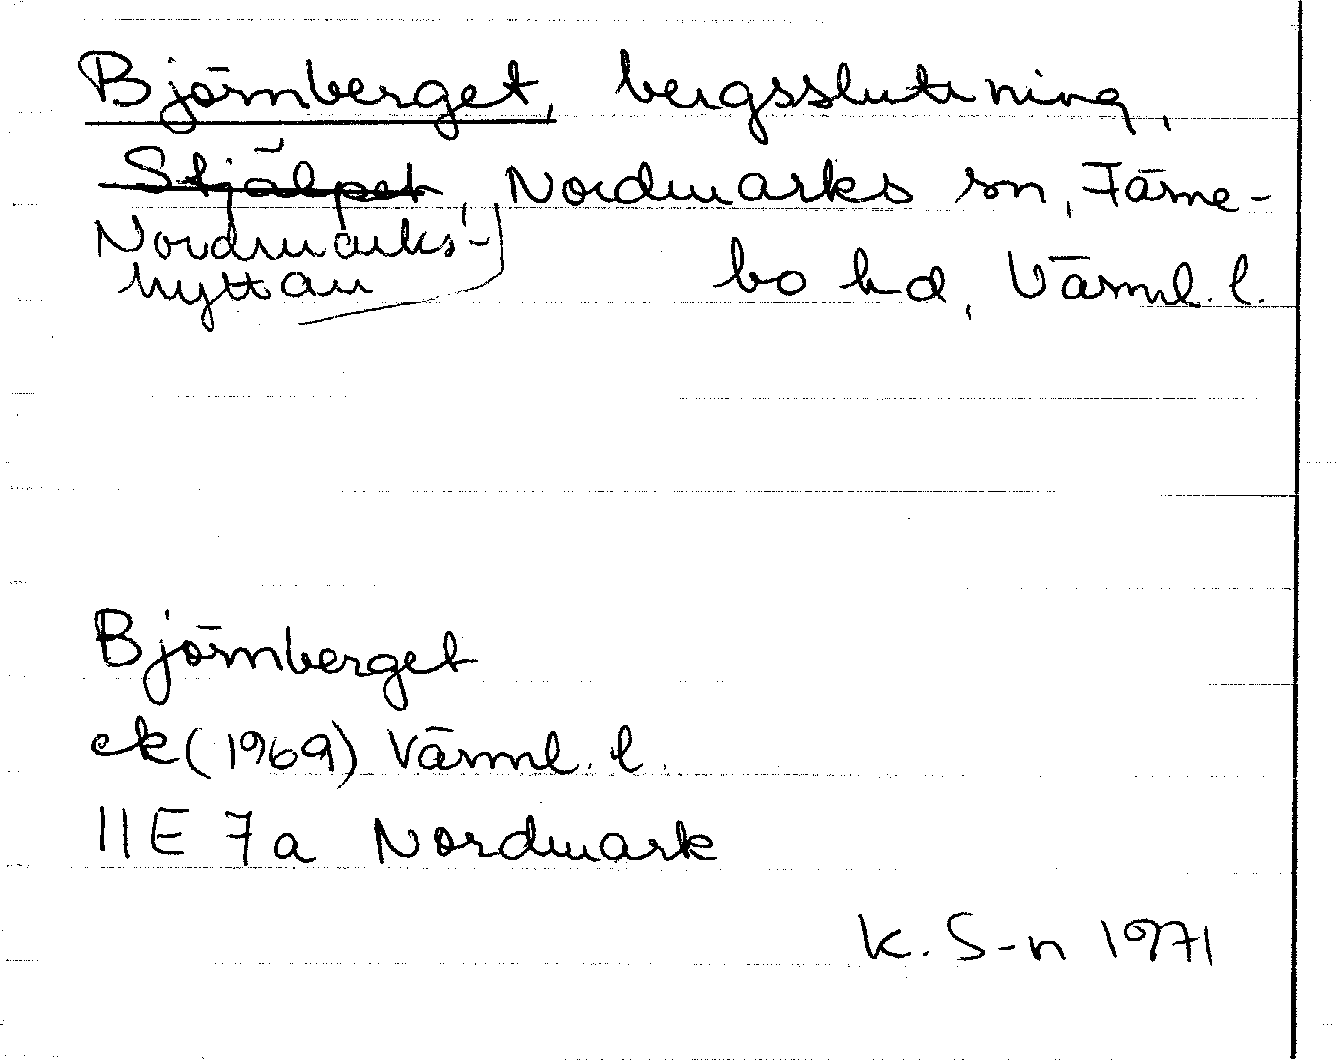 Björnberget, bergssluttning,
Stjälpet, Nordmarks sn, Färne-
Nordmarks-
hyttan
bo hd, Värml. l.
Björnberget
ek (1969) Värml. l.
11E 7a Nordmark
K. S-n 1971